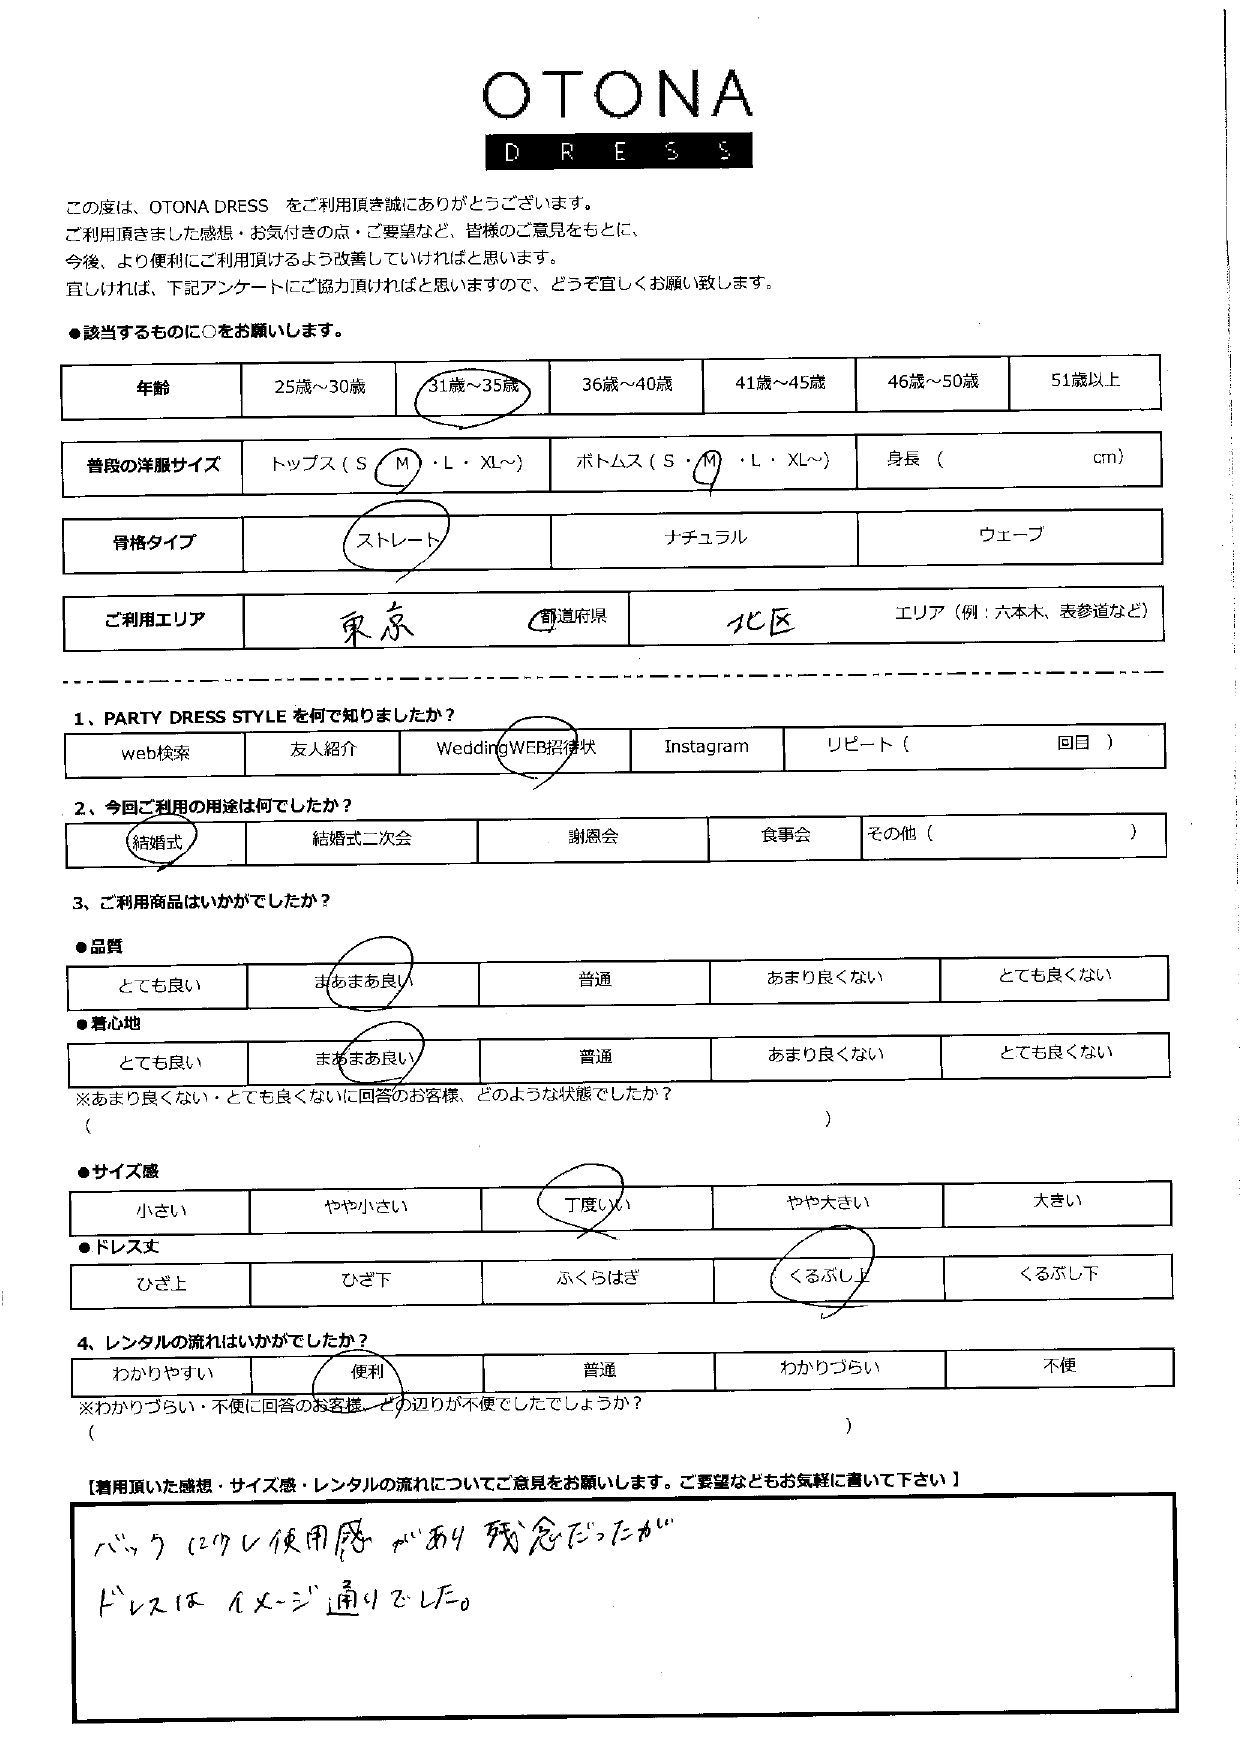 OTONA
DRESS
この度は、OTONA DRESS　をご利用頂き誠にありがとうございます。
ご利用頂きました感想・お気付きの点・ご要望など、皆様のご意見をもとに、
今後、より便利にご利用頂けるよう改善していければと思います。
宜しければ、下記アンケートにご協力頂ければと思いますので、どうぞ宜しくお願い致します。
●該当するものに○をお願いします。
年齢 25歳～30歳 31歳～35歳 36歳～40歳 41歳～45歳 46歳～50歳 51歳以上
普段の洋服サイズ トップス（ S ・ M ・ L ・ XL～） ボトムス（ S ・ M ・ L ・ XL～） 身長 （ cm）
骨格タイプ ストレート ナチュラル ウェーブ
ご利用エリア 東京 都道府県 北区 エリア（例：六本木、表参道など）
1、PARTY DRESS STYLE を何で知りましたか？
web検索 友人紹介 WeddingWEB招待状 Instagram リピート（ 回目 ）
2、今回ご利用の用途は何でしたか？
結婚式 結婚式二次会 謝恩会 食事会 その他（ ）
3、ご利用商品はいかがでしたか？
●品質
とても良い まあまあ良い 普通 あまり良くない とても良くない
●着心地
とても良い まあまあ良い 普通 あまり良くない とても良くない
※あまり良くない・とても良くないに回答のお客様、どのような状態でしたか？
（ ）
●サイズ感
小さい やや小さい 丁度いい やや大きい 大きい
●ドレス丈
ひざ上 ひざ下 ふくらはぎ くるぶし上 くるぶし下
4、レンタルの流れはいかがでしたか？
わかりやすい 便利 普通 わかりづらい 不便
※わかりづらい・不便に回答のお客様、どの辺りが不便でしたでしょうか？
（ ）
【着用頂いた感想・サイズ感・レンタルの流れについてご意見をお願いします。ご要望などもお気軽に書いて下さい 】
バックに少し使用感があり残念だったが
ドレスはイメージ通りでした。